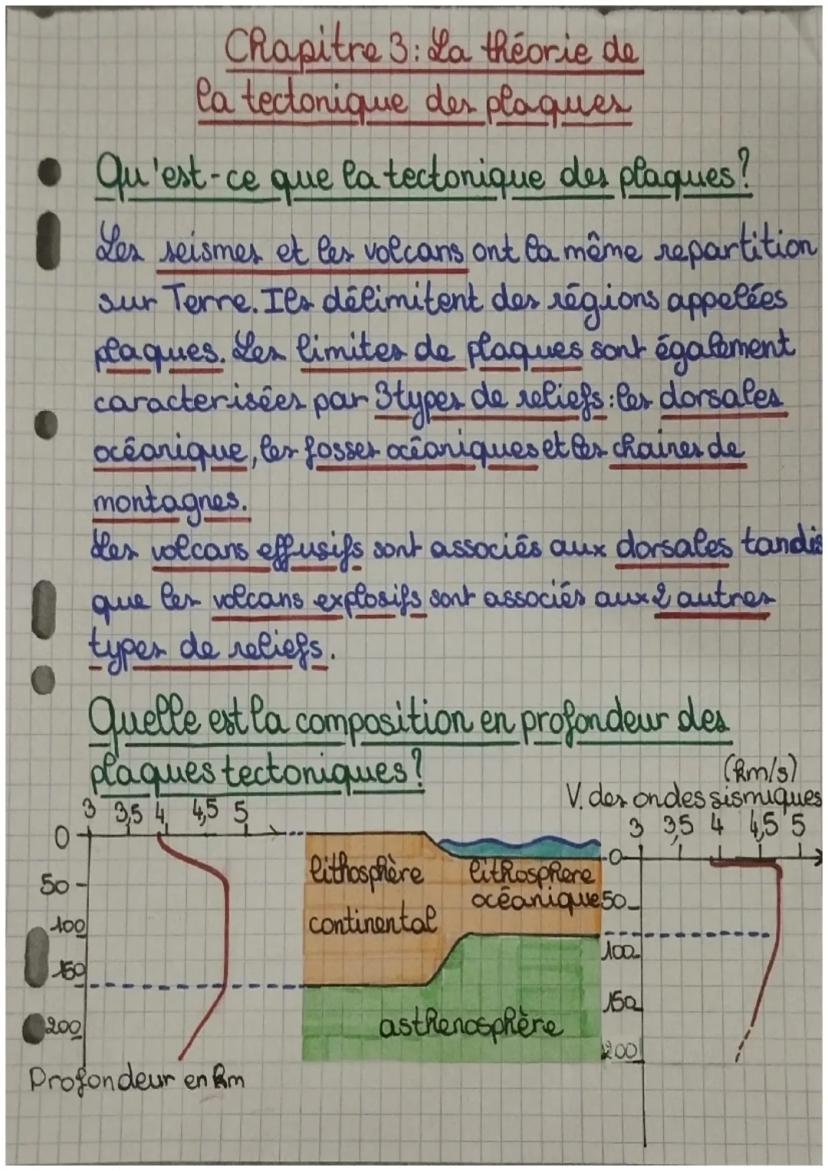 Chapitre 3: La théorie de
la tectonique des plaques
Qu'est-ce que la tectonique des plaques?
Les seismes et les volcans ont la même repartition
sur Terre. Ils délimitent des régions appelées
plaques. Les limites de plaques sont également
caracterisées par 3 types de reliefs: les dorsales
océanique, les fosses océaniques et les chaines de
montagnes.
Les volcans effusifs sont associés aux dorsales tandis
que les volcans explosifs sont associés aux 2 autres
types de reliefs.
Quelle est la composition en profondeur des
plaques tectoniques?
(km/s)
V. des ondes sismiques
3 3,5 4 4,5 5
0
50
100
150
200
Profondeur en km
lithosphère
continental
lithosphere
océanique
asthenosphère
3 3,5 4 4,5 5
0
50
100
150
200